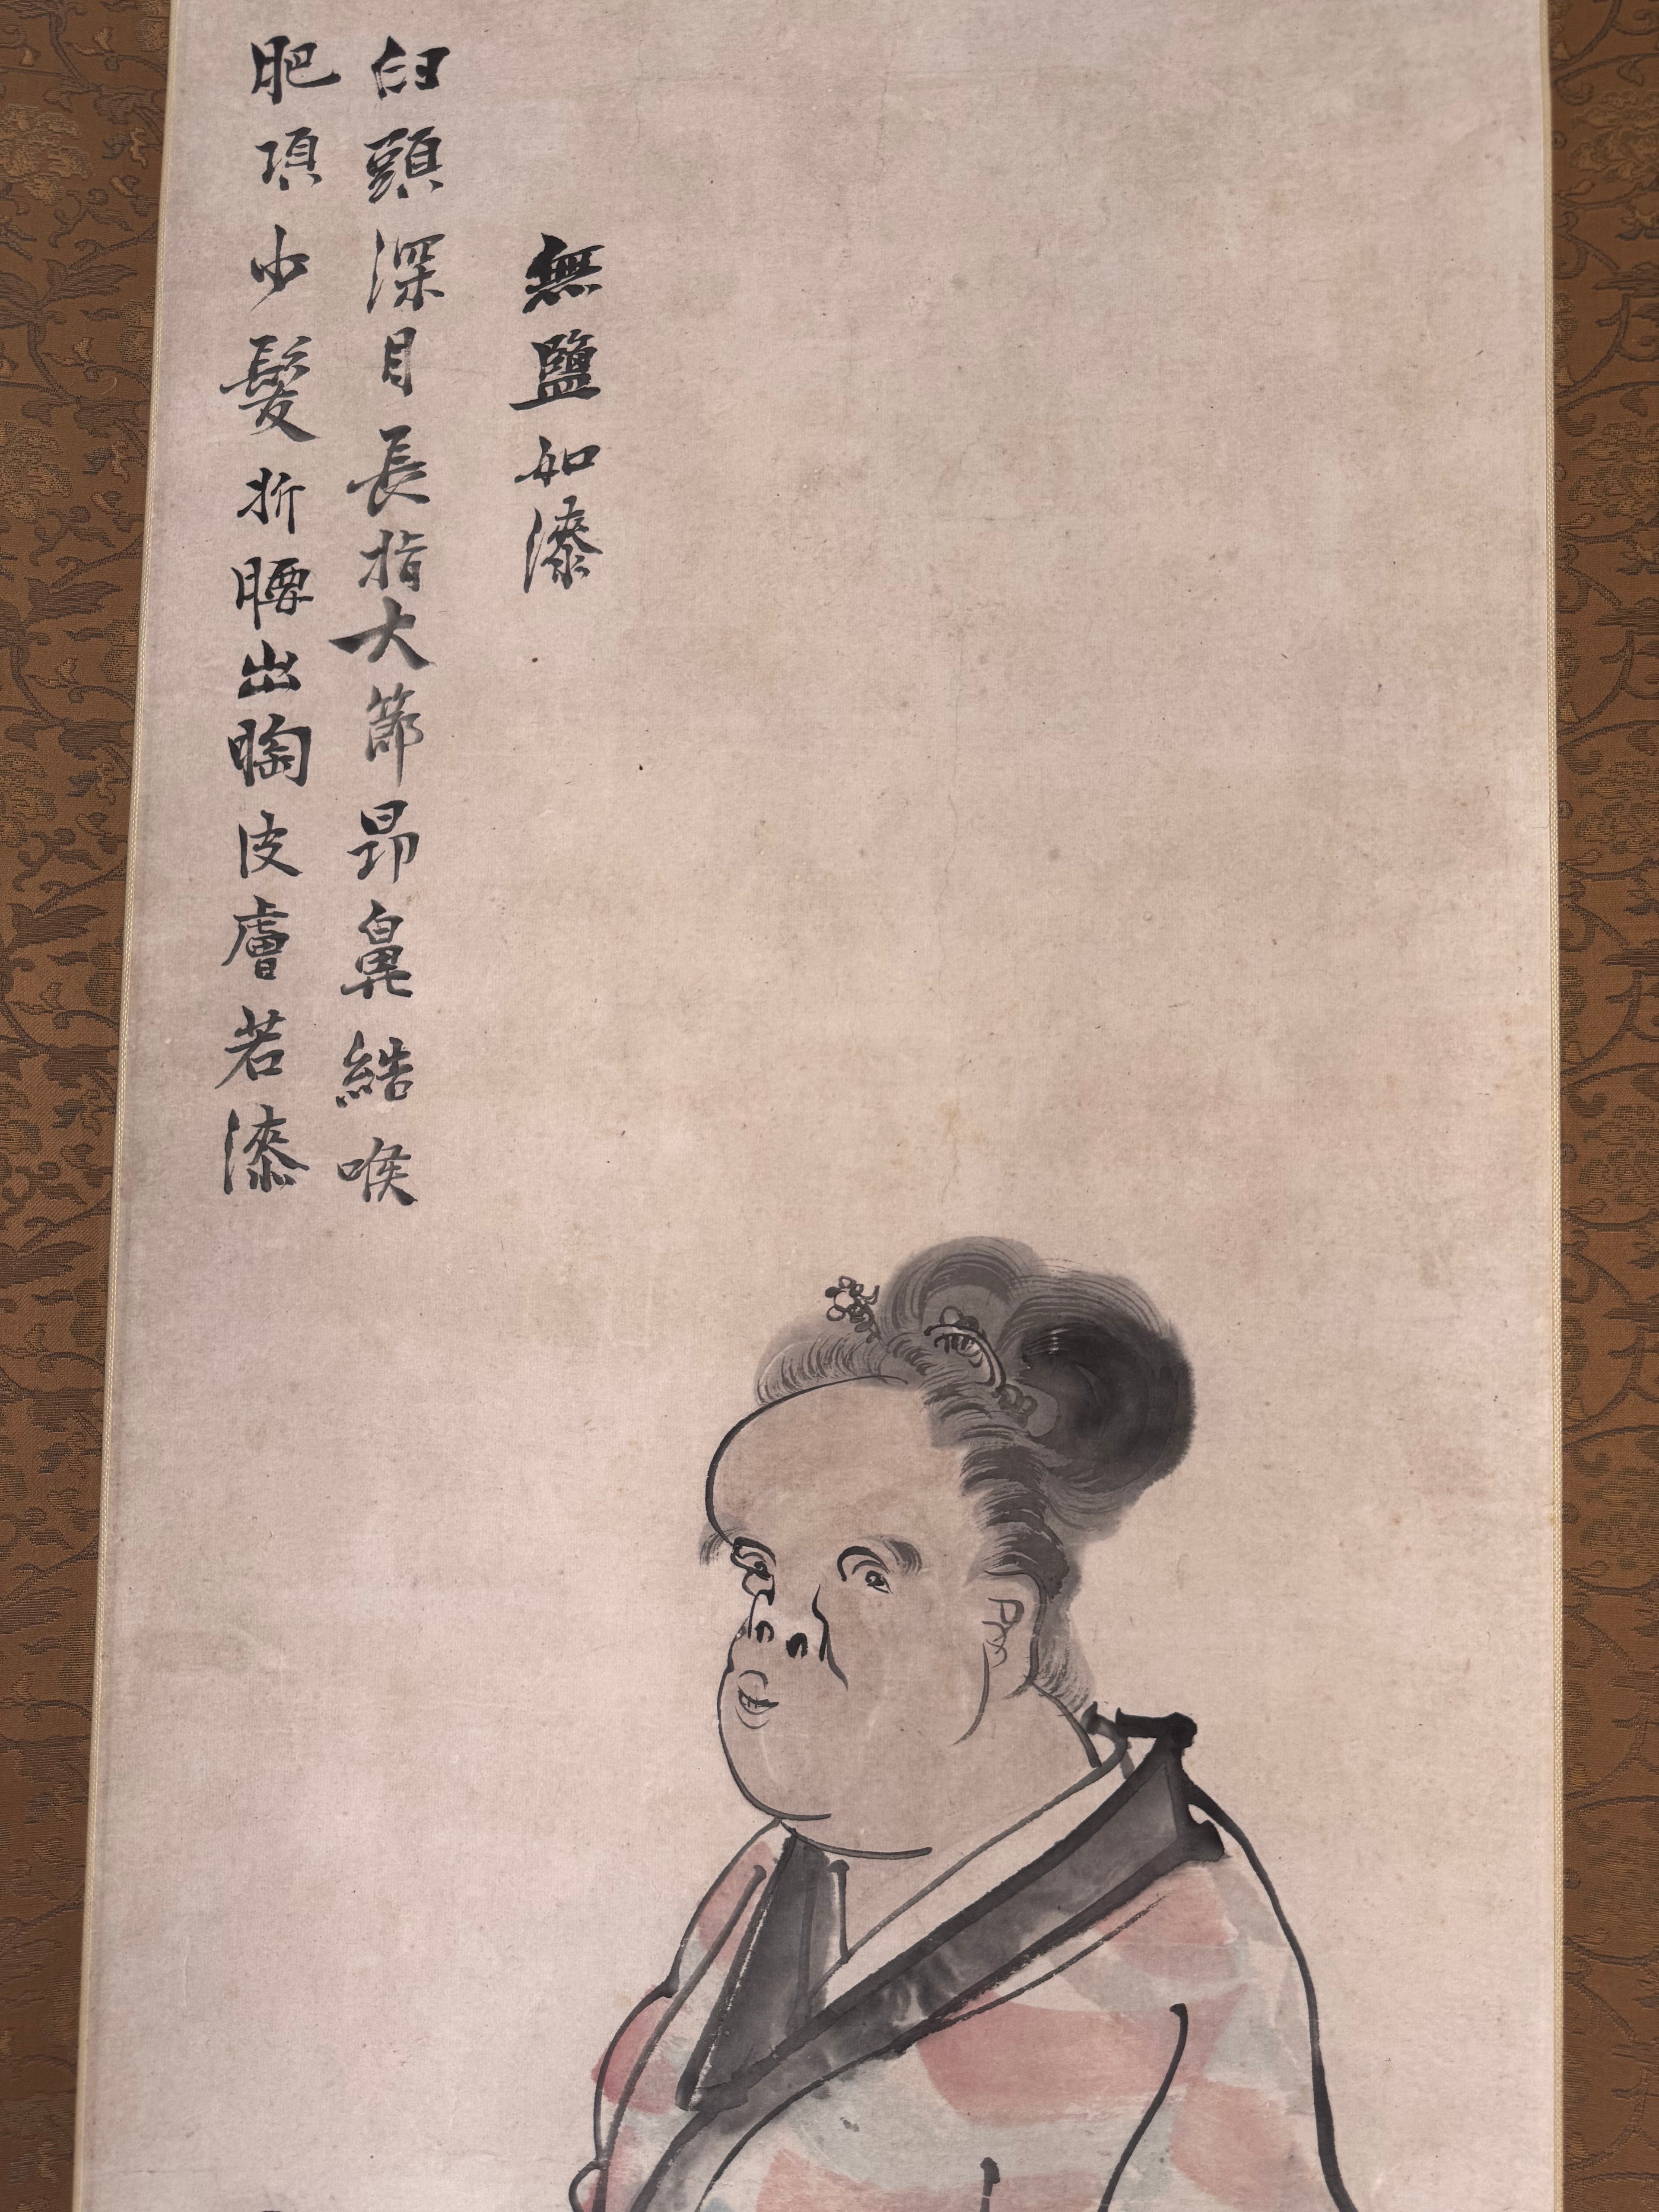 無鹽如漆
臼頭深目長指大節昂鼻結喉
肥項少髮折腰出胸皮膚若漆